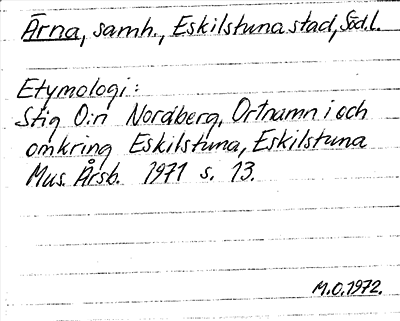 Ärna, samh., Eskilstuna stad, Södl.
Etymologi:
Stig O:n Nordberg, Ortnamn i och
omkring Eskilstuna, Eskilstuna
Mus. Årsb. 1971 s. 13.
M.O.1972.